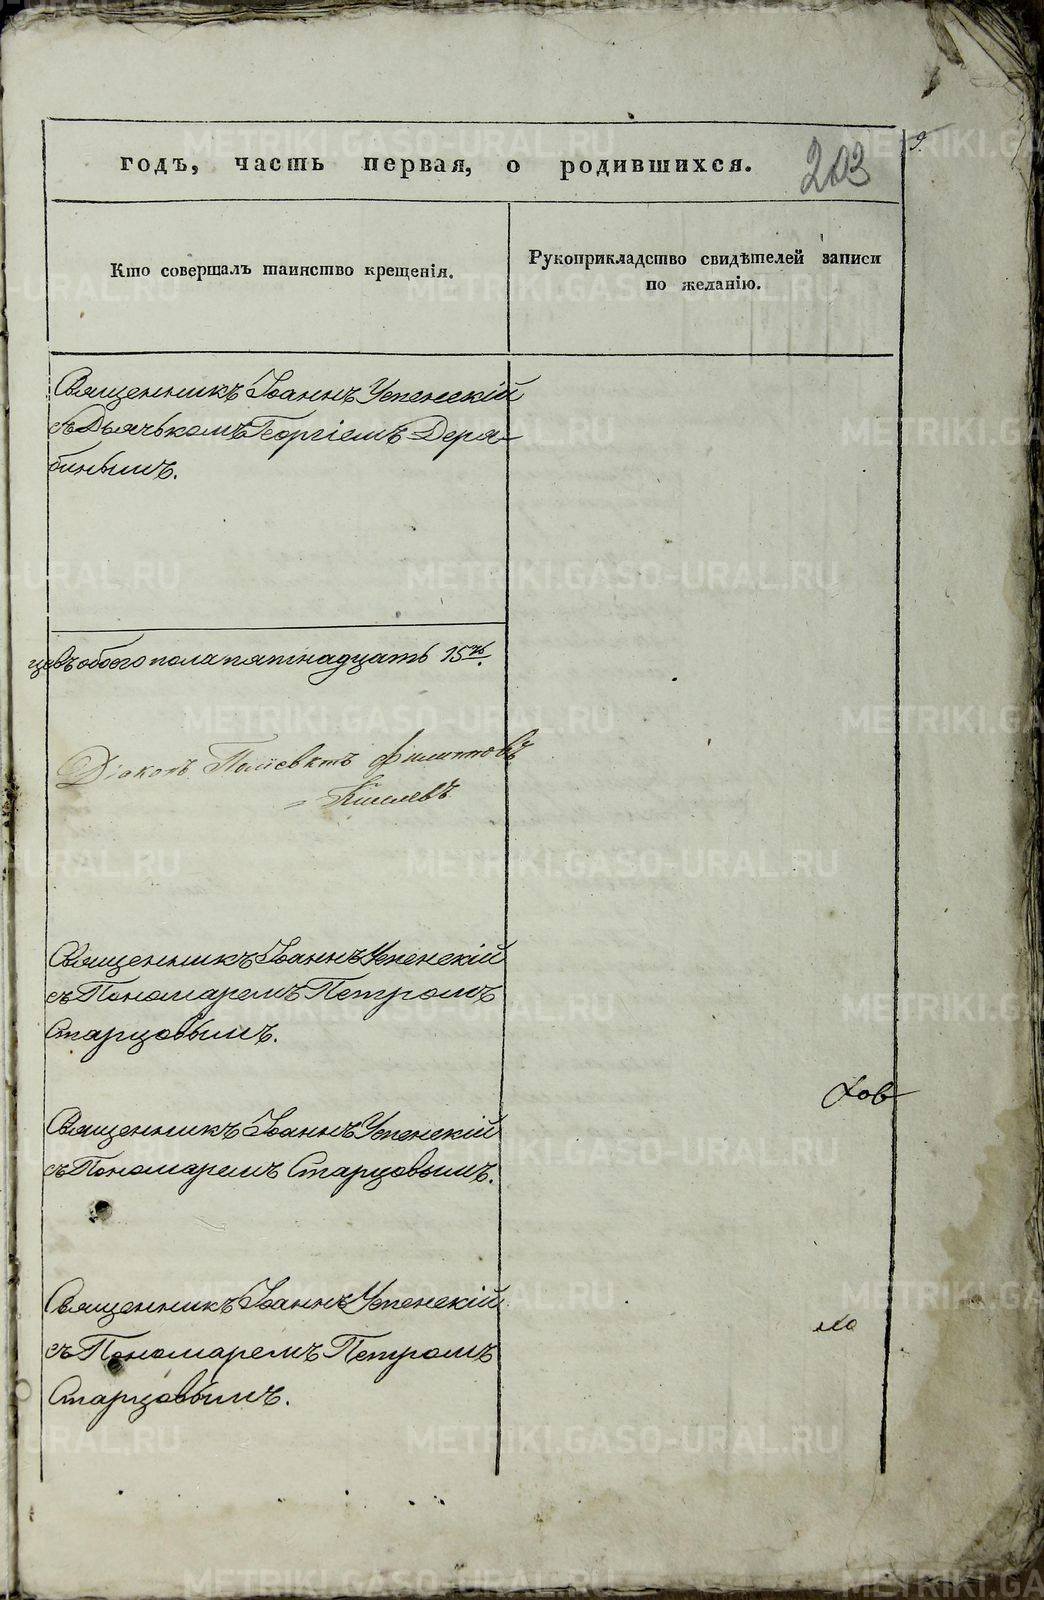 годъ, часть первая, о родившихся.
203
Кто совершалъ таинство крещенія.
Рукоприкладство свидѣтелей записи
по желанію.
Священникъ Іоаннъ Успенскій
съ Дьячькомъ Георгіемъ Деря-
бинымъ.
цевъ обоего пола пятнадцать 15ть.
Діаконъ Поліевктъ Филиповъ
Киселевъ
Священникъ Іоаннъ Успенскій
съ Пономаремъ Петромъ
Старцовымъ.
Священникъ Іоаннъ Успенскій
съ Пономаремъ Старцовымъ.
Священникъ Іоаннъ Успенскій
съ Пономаремъ Петромъ
Старцовымъ.
METRIKI.GASO-URAL.RU